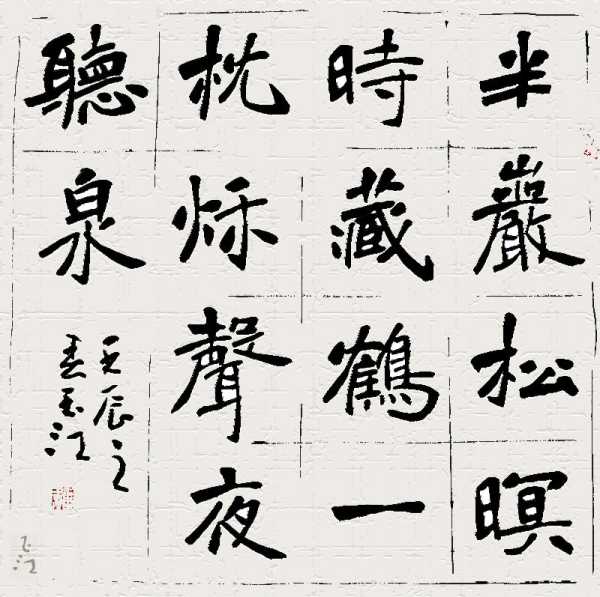 半巖松暝
時藏鶴一
枕秋聲夜
聽泉
壬辰之
春玉江